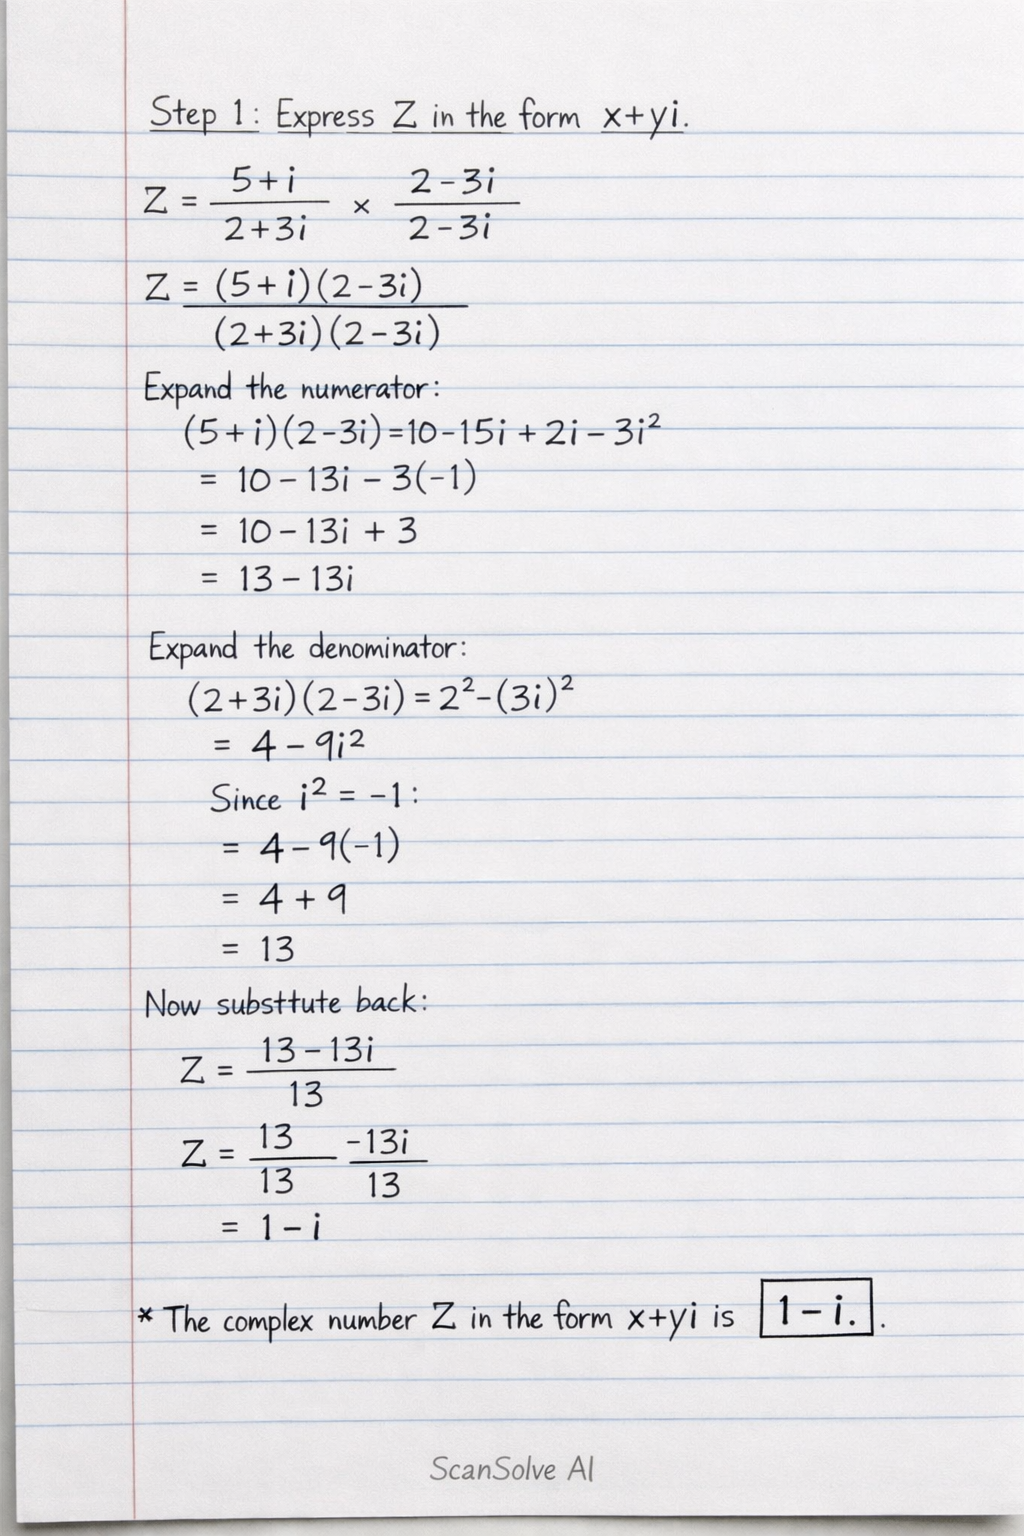 Step 1: Express Z in the form x+yi.
Z = (5+i)/(2+3i) × (2-3i)/(2-3i)
Z = (5+i)(2-3i) / (2+3i)(2-3i)
Expand the numerator:
(5+i)(2-3i)=10-15i+2i-3i²
= 10-13i-3(-1)
= 10-13i+3
= 13-13i
Expand the denominator:
(2+3i)(2-3i)=2²-(3i)²
= 4-9i²
Since i² = -1:
= 4-9(-1)
= 4+9
= 13
Now substtute back:
Z = (13-13i)/13
Z = 13/13 -13i/13
= 1-i
* The complex number Z in the form x+yi is 1-i. .
ScanSolve AI